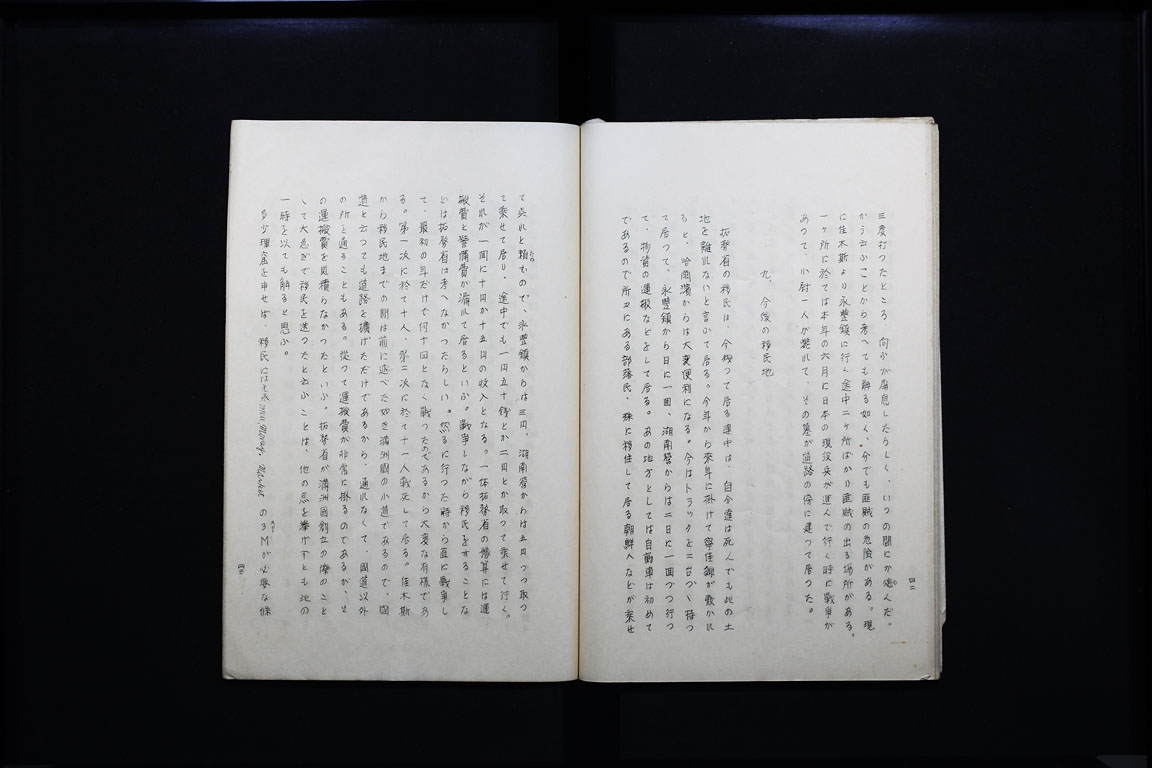 三度打つたところ、向ふが屈息したらしく、いつの間にか熄んだ。
かう云ふことから考へても解る如く、今でも匪賊の危險がある。現
に佳木斯より永豐鎭に行く途中二ケ所ばかり匪賊の出る場所がある。
一ケ所に於ては本年の六月に日本の現役兵が進んで行く時に戰爭が
あつて、小尉一人が斃れて、その墓が道路の傍に建つて居つた。
九、今後の移民地
拓務省の移民は、今殘つて居る連中は、自分達は死んでも此の土
地を離れないと言ふて居る。今年から來年に掛けて寧佳線が敷かれ
ると、哈爾濱からは大變便利になる。今はトラックを二台づゝ持つ
て居つて、永豐鎭から日に一回、湖南營からは二日に一回づつ行つ
て、物資の運搬などをして居る。あの地方としては自動車は初めて
であるので所々にある部落民、殊に移住して居る朝鮮人などが乘せ
四二
て呉れと賴むので、永豐鎭からは三円、湖南營からは五円づつ取つ
て乘せて居り、途中でも一円五十錢とか二円とか取つて乘せて行く。
それが一回に十円か十五円の收入となる。一体拓務省の豫算には運
搬費と警備費が漏れて居るといふ。戰爭しながら移民をすることな
どは拓務省は考へなかつたらしい。然るに行つた時から直に戰爭し
て、最初の年だけで何十回となく戰つたのであるから大變な有樣であ
る。第一次に於て十人、第二次に於て十一人戰死して居る。佳木斯
から移民地までの間は前に述べた如き滿洲國の小道であるので、國
道と云つても道路を擴げただけであるから、通れなくて、國道以外
の所を通ることもある。從つて運搬費が非常に掛るのであるが、そ
の運搬費を見積らなかつたといふ。拓務省が滿洲國創立の際のこと
して大急ぎで移民を送つたと云ふことは、他の思を擧げずとも此の
一時を以ても解ると思ふ。
多少理窟を申せば、移民には
Money, Market の3Mが必要な條
四三